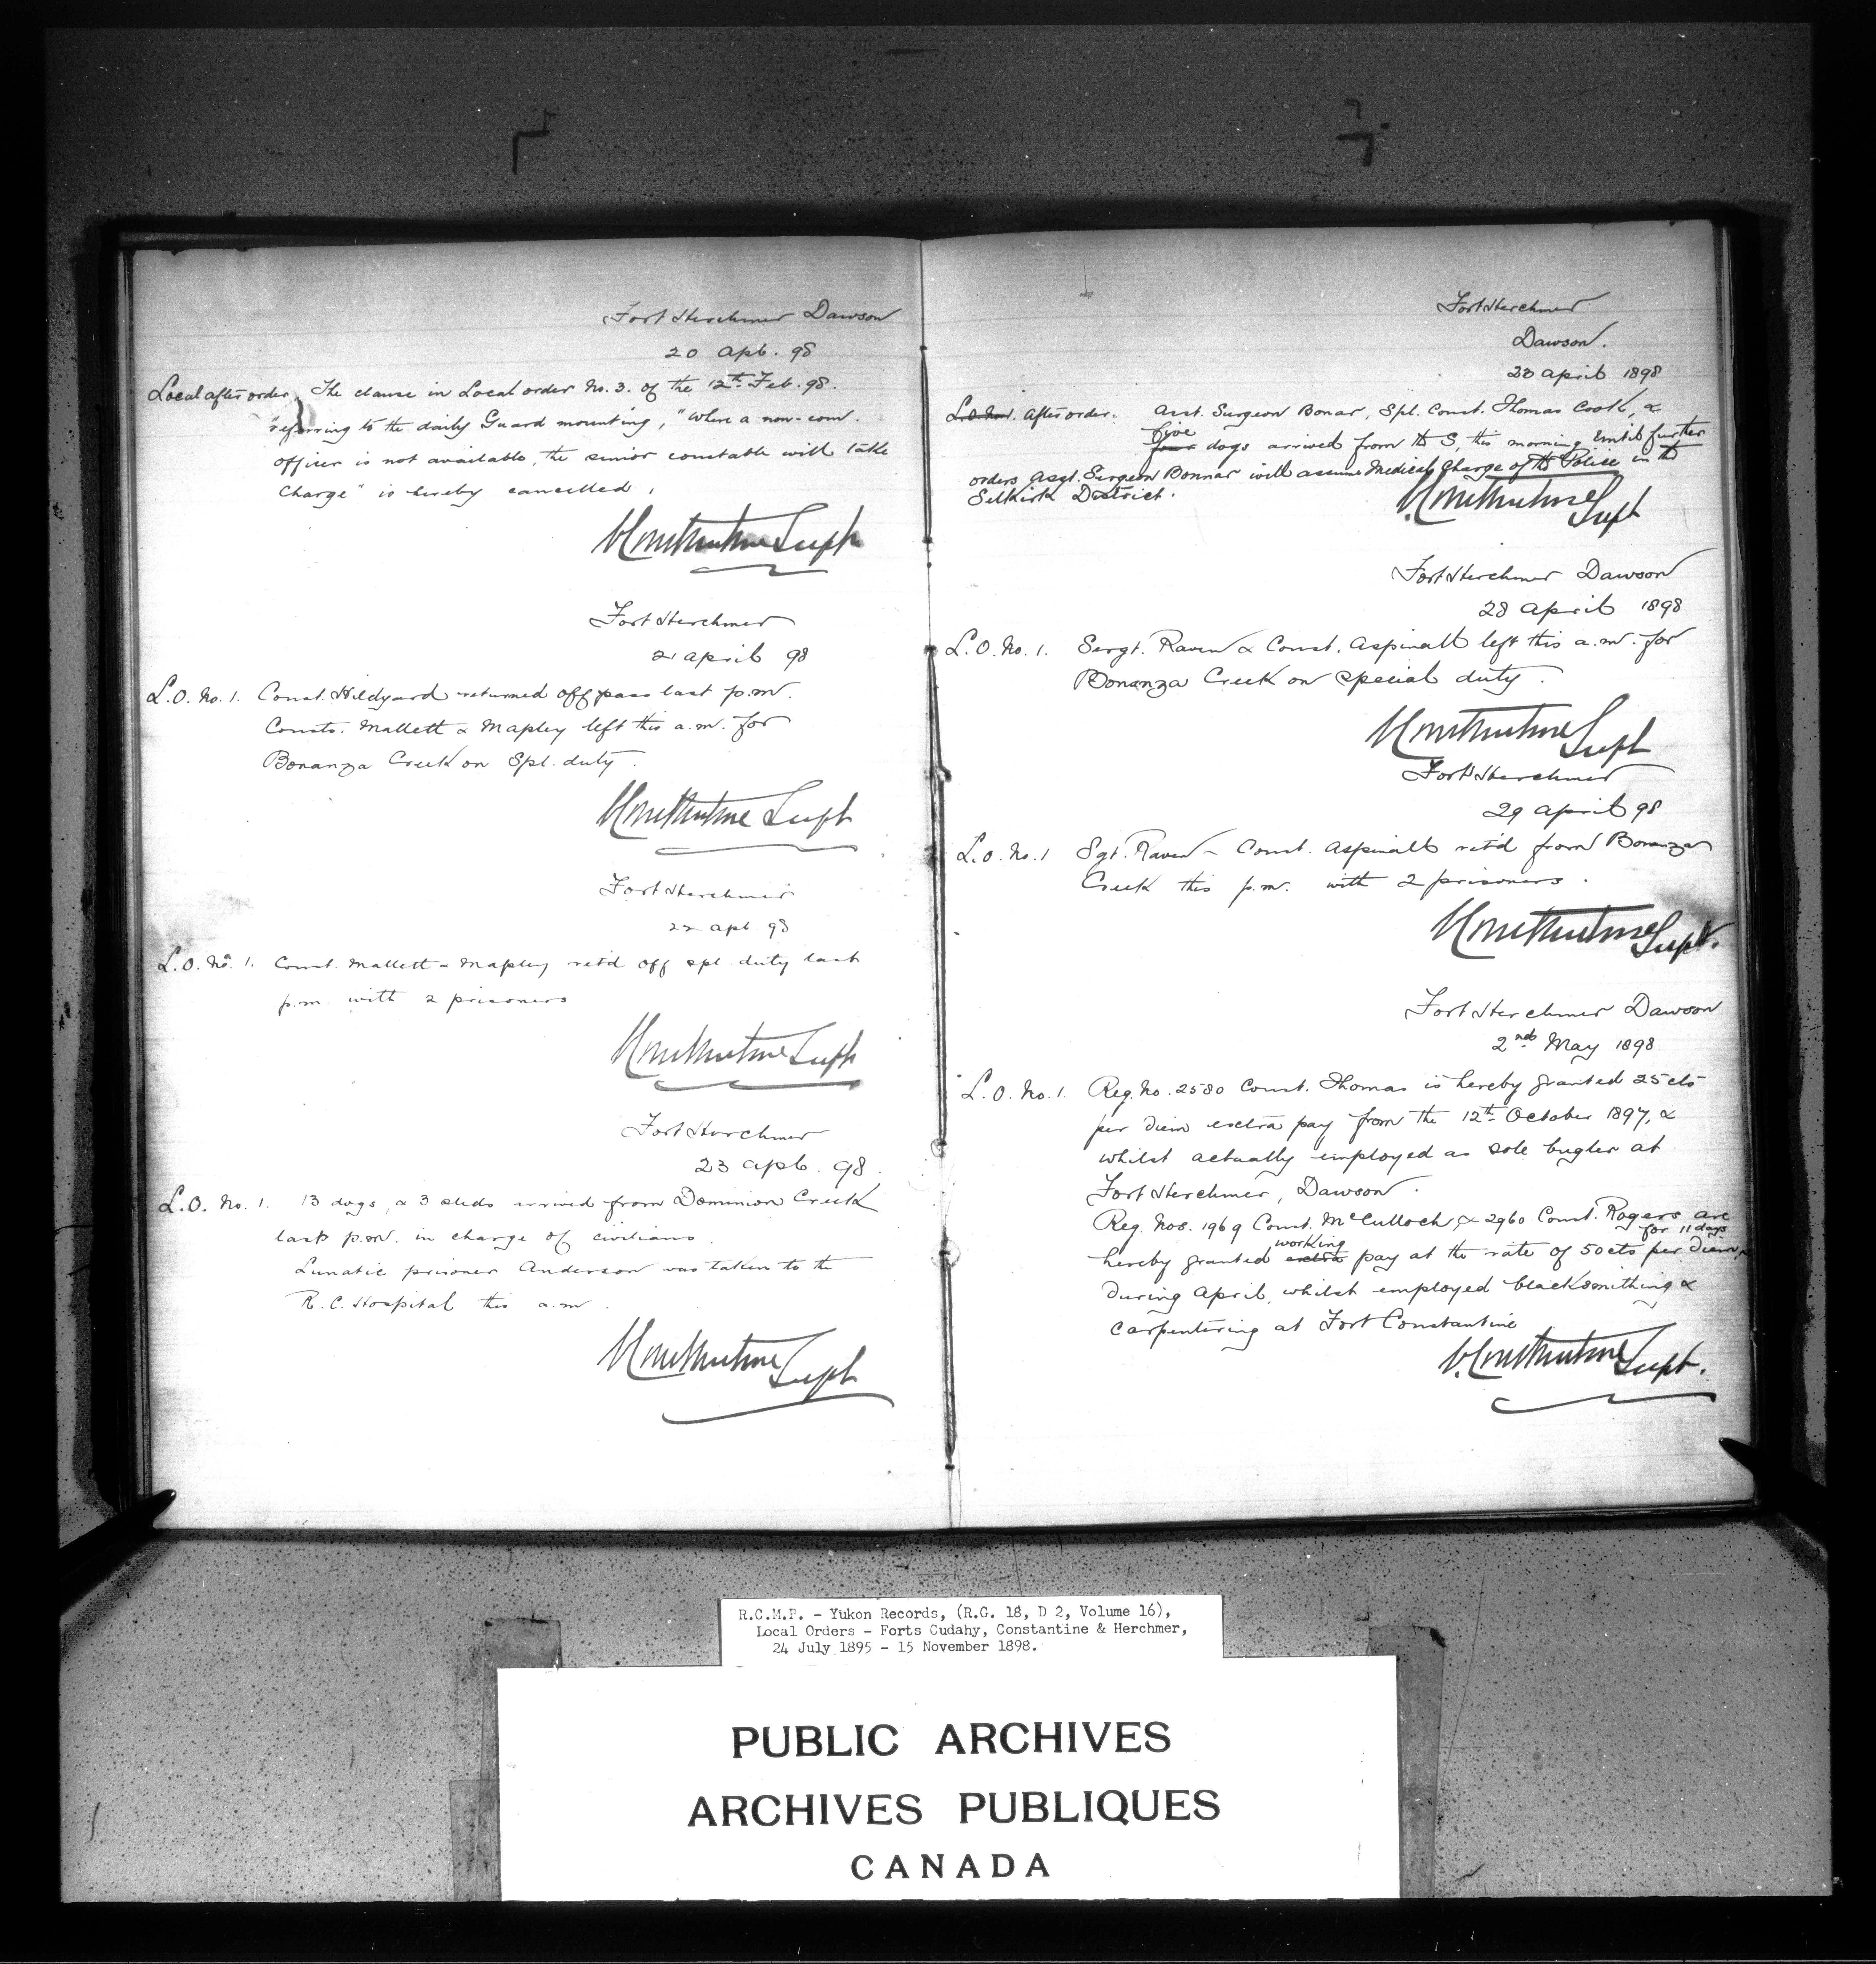 Fort Herchmer Dawson
20 Apl. 98
Local after order. The clause in Local order No. 3. of the 12th Feb. 98.
referring to the daily Guard mounting, "Where a non-com.
officer is not available, the senior constable will take
charge" is hereby cancelled.
C Constantine Supt
Fort Herchmer
21 April 98
L.O. No. 1. Const. Hildyard returned off pass last p.m.
Consts. Mallett & Mapley left this a.m. for
Bonanza Creek on Spl. duty.
C Constantine Supt
Fort Herchmer
22 Apl 98
L.O. No. 1. Const. Mallett & Mapley retd off spl. duty last
p.m. with 2 prisoners
C Constantine Supt
Fort Herchmer
23 Apl. 98.
L.O. No. 1. 13 dogs, & 3 sleds arrived from Dominion Creek
last p.m. in charge of civilians.
Lunatic prisoner Anderson was taken to the
R.C. Hospital this a.m.
C Constantine Supt
Fort Herchmer
Dawson.
23 April 1898
L.O. No. 1. After order. Asst. Surgeon Bonar, Spl. Const. Thomas Cook, &
five
four dogs arrived from the S, this morning Until further
orders Asst. Surgeon Bonnar will assume Medical Charge of the Police in the
Selkirk District.
C. Constantine Supt
Fort Herchmer Dawson
28 April 1898
L.O. No. 1. Sergt. Raven & Const. Aspinall left this a.m. for
Bonanza Creek on special duty.
C Constantine Supt
Fort Herchmer
29 April 98
L.O. No. 1 Sgt. Raven & Const. Aspinall ret'd from Bonanza
Creek this p.m. with 2 prisoners.
C Constantine Supt.
Fort Herchmer Dawson
2nd May 1898
L.O. No. 1. Reg. No. 2580 Const. Thomas is hereby granted 25 cts
per diem extra pay from the 12th October 1897, &
whilst actually employed as sole bugler at
Fort Herchmer, Dawson.
Reg. Nos. 1969 Const. McCulloch, & 2960 Const. Rogers are
working for 11 days
hereby granted extra pay at the rate of 50 cts per diem,
during April, whilst employed blacksmithing &
carpentering at Fort Constantine
C. Constantine Supt.
R.C.M.P. - Yukon Records, (R.G. 18, D 2, Volume 16),
Local Orders - Forts Cudahy, Constantine & Herchmer,
24 July 1895 - 15 November 1898.
PUBLIC ARCHIVES
ARCHIVES PUBLIQUES
CANADA